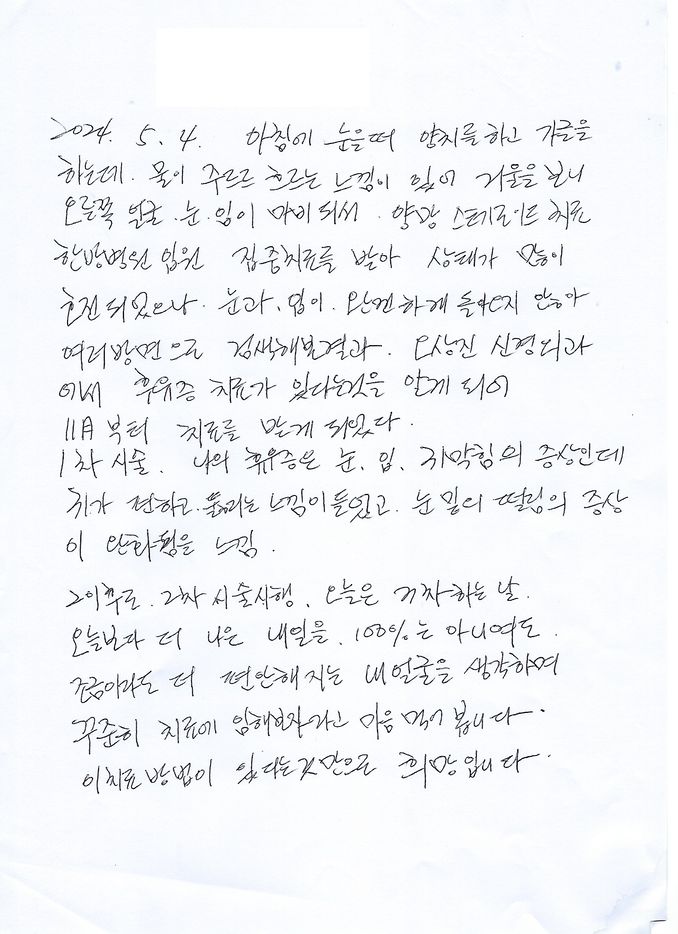 2024. 5. 4. 아침에 눈을떠 양치를하고 가글을
하는데. 물이 주르르 흐르는 느낌이 있어 거울을 보니
오른쪽 얼굴.눈.입이 마비되서. 양방 스테로이드 치료
한방병원 입원 집중치료를 받아 상태가 많이
호전되었으나. 눈과. 입이. 완전하게 돌아오지 않아
여러방면으로 검색해본결과. 오상진 신경외과
에서 후유증 치료가 있다는것을 알게 되어
11月부터 치료를 받게 되었다.
1차시술. 나의 후유증은 눈. 입. 귀막힘의 증상인데
귀가 편하고. 뚫리는 느낌이들었고. 눈밑의 떨림의 증상
이 완화됨을 느낌.
그이후로. 2차 시술시행. 오늘은 3차하는날.
오늘보다 더 나은 내일을. 100%는 아니여도.
조금이라도 더 편안해지는 내얼굴을 생각하며
꾸준히 치료에 임해보자라고 마음먹어 봅니다.
이치료방법이 있다는것만으로 희망입니다.